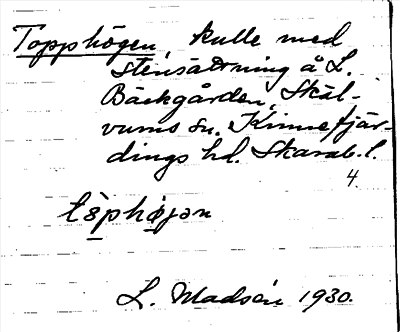 Topphögen, kulle med
stensättning å L.
Bäckgården, Skäl-
vums sn. Kinnefjär-
dings hd. Skarab. l.
4.
tòphø̣jan
L. Madsén 1930.